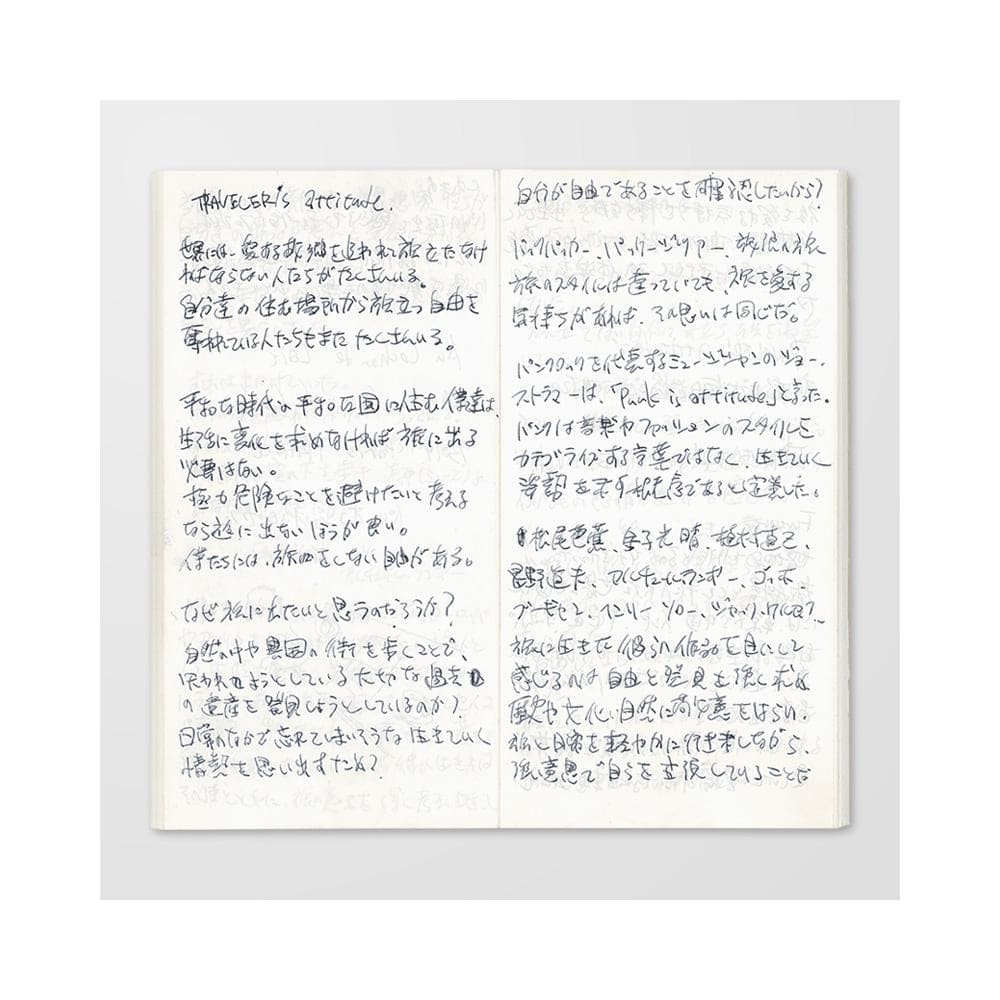 TRAVELER'S attitude.
世界には、愛する故郷を追われて旅立たなけ
ればならない人たちがたくさんいる。
自分達の住む場所から旅立つ自由を
奪われている人たちもまたたくさんいる。
平和な時代の平和な国に住む僕達は、
生活に変化を求めなければ旅に出る
必要はない。
極力危険なことを避けたいと考える
なら旅に出ないほうが良い。
僕たちには、旅をしない自由がある。
なぜ旅に出たいと思うのだろうか?
自然の中や異国の街を歩くことで、
失われようとしている大切な過去
の遺産を発見しようとしているのか?
日常のなかで忘れてしまいそうな生きていく
情熱を思い出すため?
自分が自由であることを確認したいから?
バックパッカー、パッケージツアー、放浪の旅
旅のスタイルは違っていても、旅を愛する
気持ちがあれば、その思いは同じだ。
パンクロックを代表するミュージシャンのジョー・
ストラマーは、「Punk is attitude」と言った。
パンクは音楽やファッションのスタイルを
カテゴライズする言葉ではなく、生きていく
姿勢を示す言葉であると定義した。
松尾芭蕉、金子光晴、植村直己、
星野道夫、アルチュール・ランボー、ゴッホ、
ゴーギャン、ヘンリー・ソロー、ジャック・ケルアック…
旅に生きた彼らの作品を目にして
感じるのは自由と発見を強く求め
歴史や文化、自然に敬意をはらい、
旅と日常を軽やかに行き来しながら、
強い意思で自らを主張していることだ